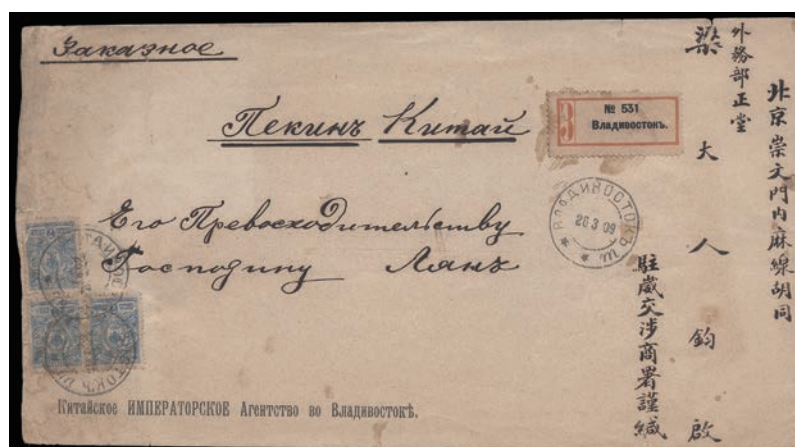 Заказное
Пекинъ Китай
№ 531
Владивостокъ.
ВЛАДИВОСТОКЪ
26 3 09
Его Превосходительству
Господину Лянъ
Китайское ИМПЕРАТОРСКОЕ Агентство во Владивостокѣ.
北京崇文門內麻線胡同
外務部正堂
梁大人鈞啟
駐崴交涉商署謹緘